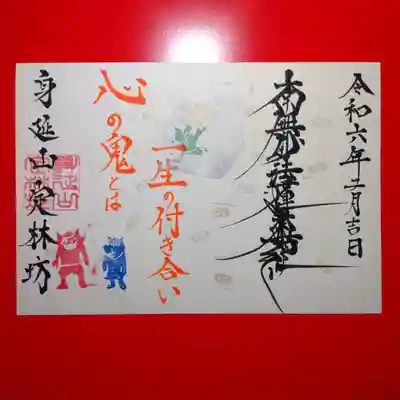 令和六年二月吉日
南無妙法蓮華経
一生の付き合い
心の鬼とは
身延山
林坊